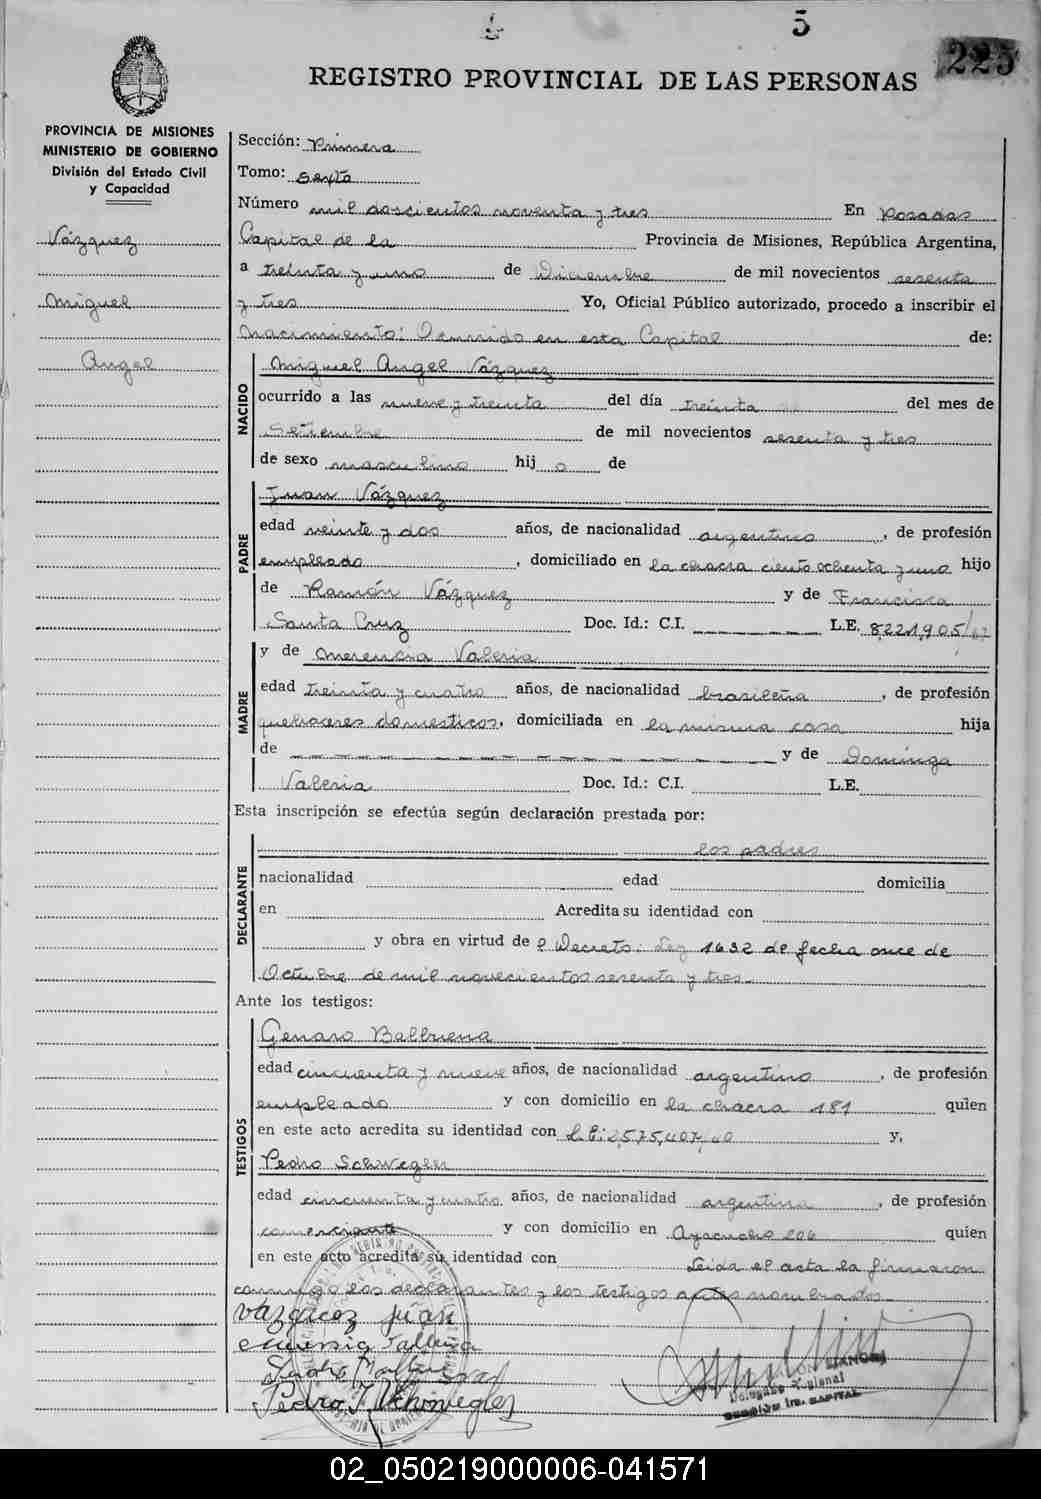 5
225
REGISTRO PROVINCIAL DE LAS PERSONAS
PROVINCIA DE MISIONES
MINISTERIO DE GOBIERNO
División del Estado Civil
y Capacidad
Vázquez
Miguel
Angel
Sección: Primera
Tomo: Sexto
Número mil doscientos noventa y tres En Posadas
Capital de la Provincia de Misiones, República Argentina,
a treinta y uno de Diciembre de mil novecientos sesenta
y tres Yo, Oficial Público autorizado, procedo a inscribir el
Nacimiento: Ocurrido en esta Capital de:
NACIDO
Miguel Angel Vázquez
ocurrido a las nueve y treinta del día treinta del mes de
Setiembre de mil novecientos sesenta y tres
de sexo masculino hij o de
PADRE
Juan Vázquez
edad veinte y dos años, de nacionalidad argentino, de profesión
empleado, domiciliado en la chacra ciento ochenta y uno hijo
de Ramón Vázquez y de Francisca
Santa Cruz Doc. Id.: C.I. L.E. 8,221,905/
MADRE
y de Merencia Valeria
edad treinta y cuatro años, de nacionalidad brasileña, de profesión
quehaceres domesticos, domiciliada en la misma casa hija
de y de Dominga
Valeria Doc. Id.: C.I. L.E.
Esta inscripción se efectúa según declaración prestada por:
DECLARANTE
los padres
nacionalidad edad domicilia
en Acredita su identidad con
y obra en virtud de Decreto: Ley 1632 de fecha once de
Octubre de mil novecientos sesenta y tres.
Ante los testigos:
TESTIGOS
Genaro Balbuena
edad cincuenta y nueve años, de nacionalidad argentino, de profesión
empleado y con domicilio en la chacra 181 quien
en este acto acredita su identidad con y,
Pedro Schwegler
edad cincuenta y cuatro años, de nacionalidad argentina, de profesión
comerciante y con domicilio en Ayacucho 206 quien
en este acto acredita su identidad con Leida el acta la firmaron
conmigo los declarantes y los testigos antes nombrados.
Vazqicez juan
Pedro J. Schwegler
Delegado Regional
SECCIÓN 1ra. CAPITAL
02_050219000006-041571